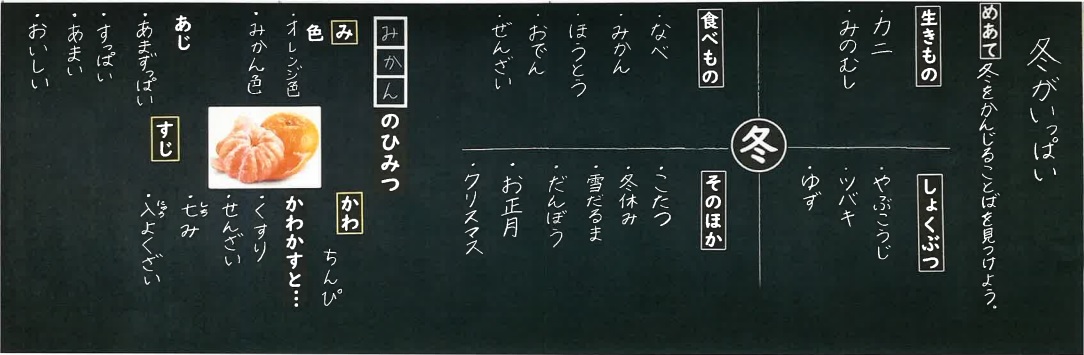 冬がいっぱい
めあて 冬をかんじることばを見つけよう。
冬
生きもの
・カニ
・みのむし
しょくぶつ
・やぶこうじ
・ツバキ
・ゆず
食べもの
・なべ
・みかん
・ほうとう
・おでん
・ぜんざい
そのほか
・こたつ
・冬休み
・雪だるま
・だんぼう
・お正月
・クリスマス
みかんのひみつ
み
色
・オレンジ色
・みかん色
あじ
・あまずっぱい
・すっぱい
・あまい
・おいしい
かわ
ちんぴ
かわかすと…
・くすり
・せんざい
・七み
しち
・入よくざい
にゅう
すじ